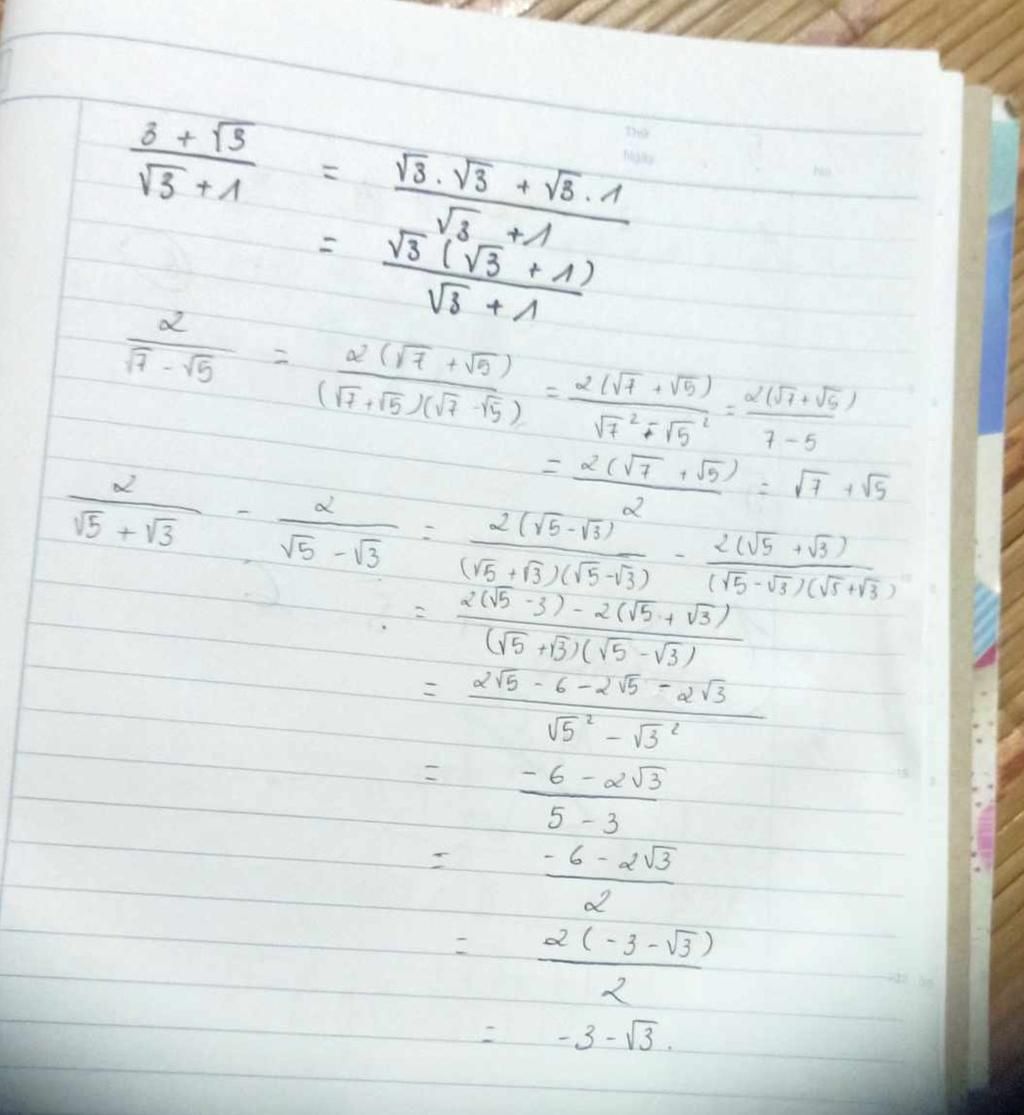 Thứ
Ngày No.
(3 + √3)/(√3 + 1) = (√3 . √3 + √3 . 1)/(√3 + 1)
= (√3 (√3 + 1))/(√3 + 1)
2/(√7 - √5) = (2(√7 + √5))/((√7 + √5)(√7 - √5)) = (2(√7 + √5))/(√7² - √5²) = (2(√7 + √5))/(7 - 5)
= (2(√7 + √5))/2 = √7 + √5
2/(√5 + √3) - 2/(√5 - √3) = (2(√5 - √3))/((√5 + √3)(√5 - √3)) - (2(√5 + √3))/((√5 - √3)(√5 + √3))
= (2(√5 - 3) - 2(√5 + √3))/((√5 + √3)(√5 - √3))
= (2√5 - 6 - 2√5 - 2√3)/(√5² - √3²)
= (-6 - 2√3)/(5 - 3)
= (-6 - 2√3)/2
= (2(-3 - √3))/2
= -3 - √3.